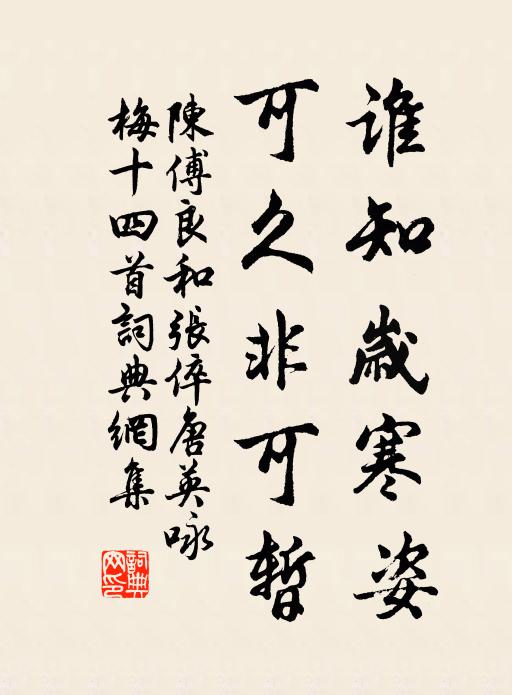 誰知歲寒姿
可久非可暫
陳傅良和張倅唐英咏
梅十四首詞典網集
詞典网印